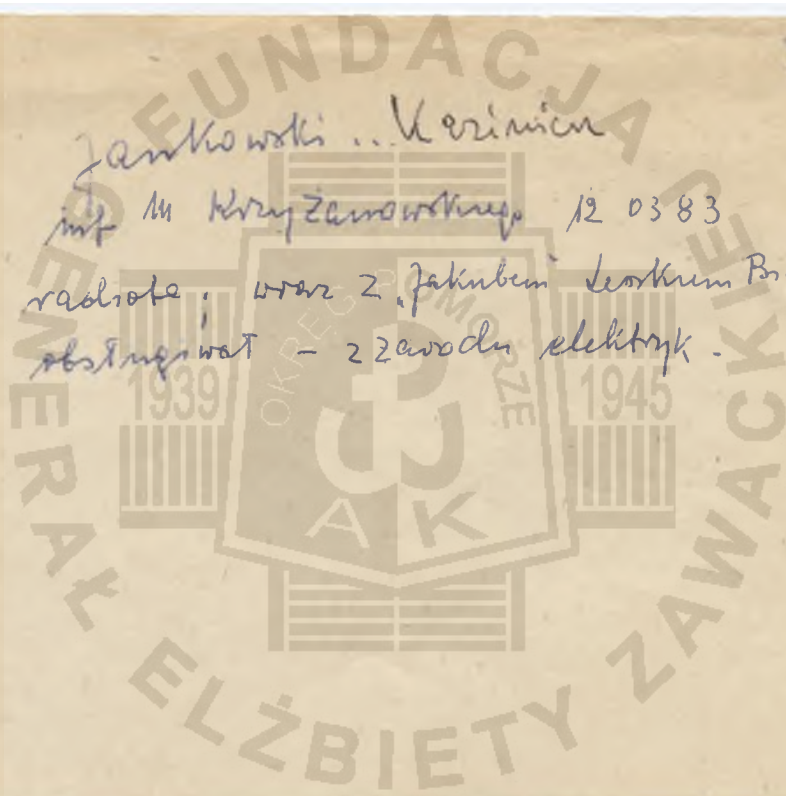 Jankowski .. Kazimierz
inf M Krzyżanowskiego 12 03 83
radiota; wraz z „Jakubem Leskiem Br
obsługiwał – z zawodu elektryk.
FUNDACJA GENERAŁ ELŻBIETY ZAWACKIEJ
OKRĘG POMORZE
1939
1945
AK